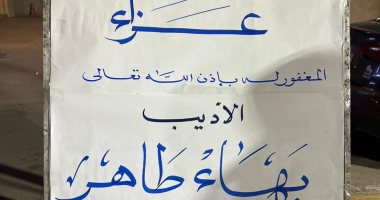 عزاء
المغفور له بإذن الله تعالى
الأديب
بهاء طاهر